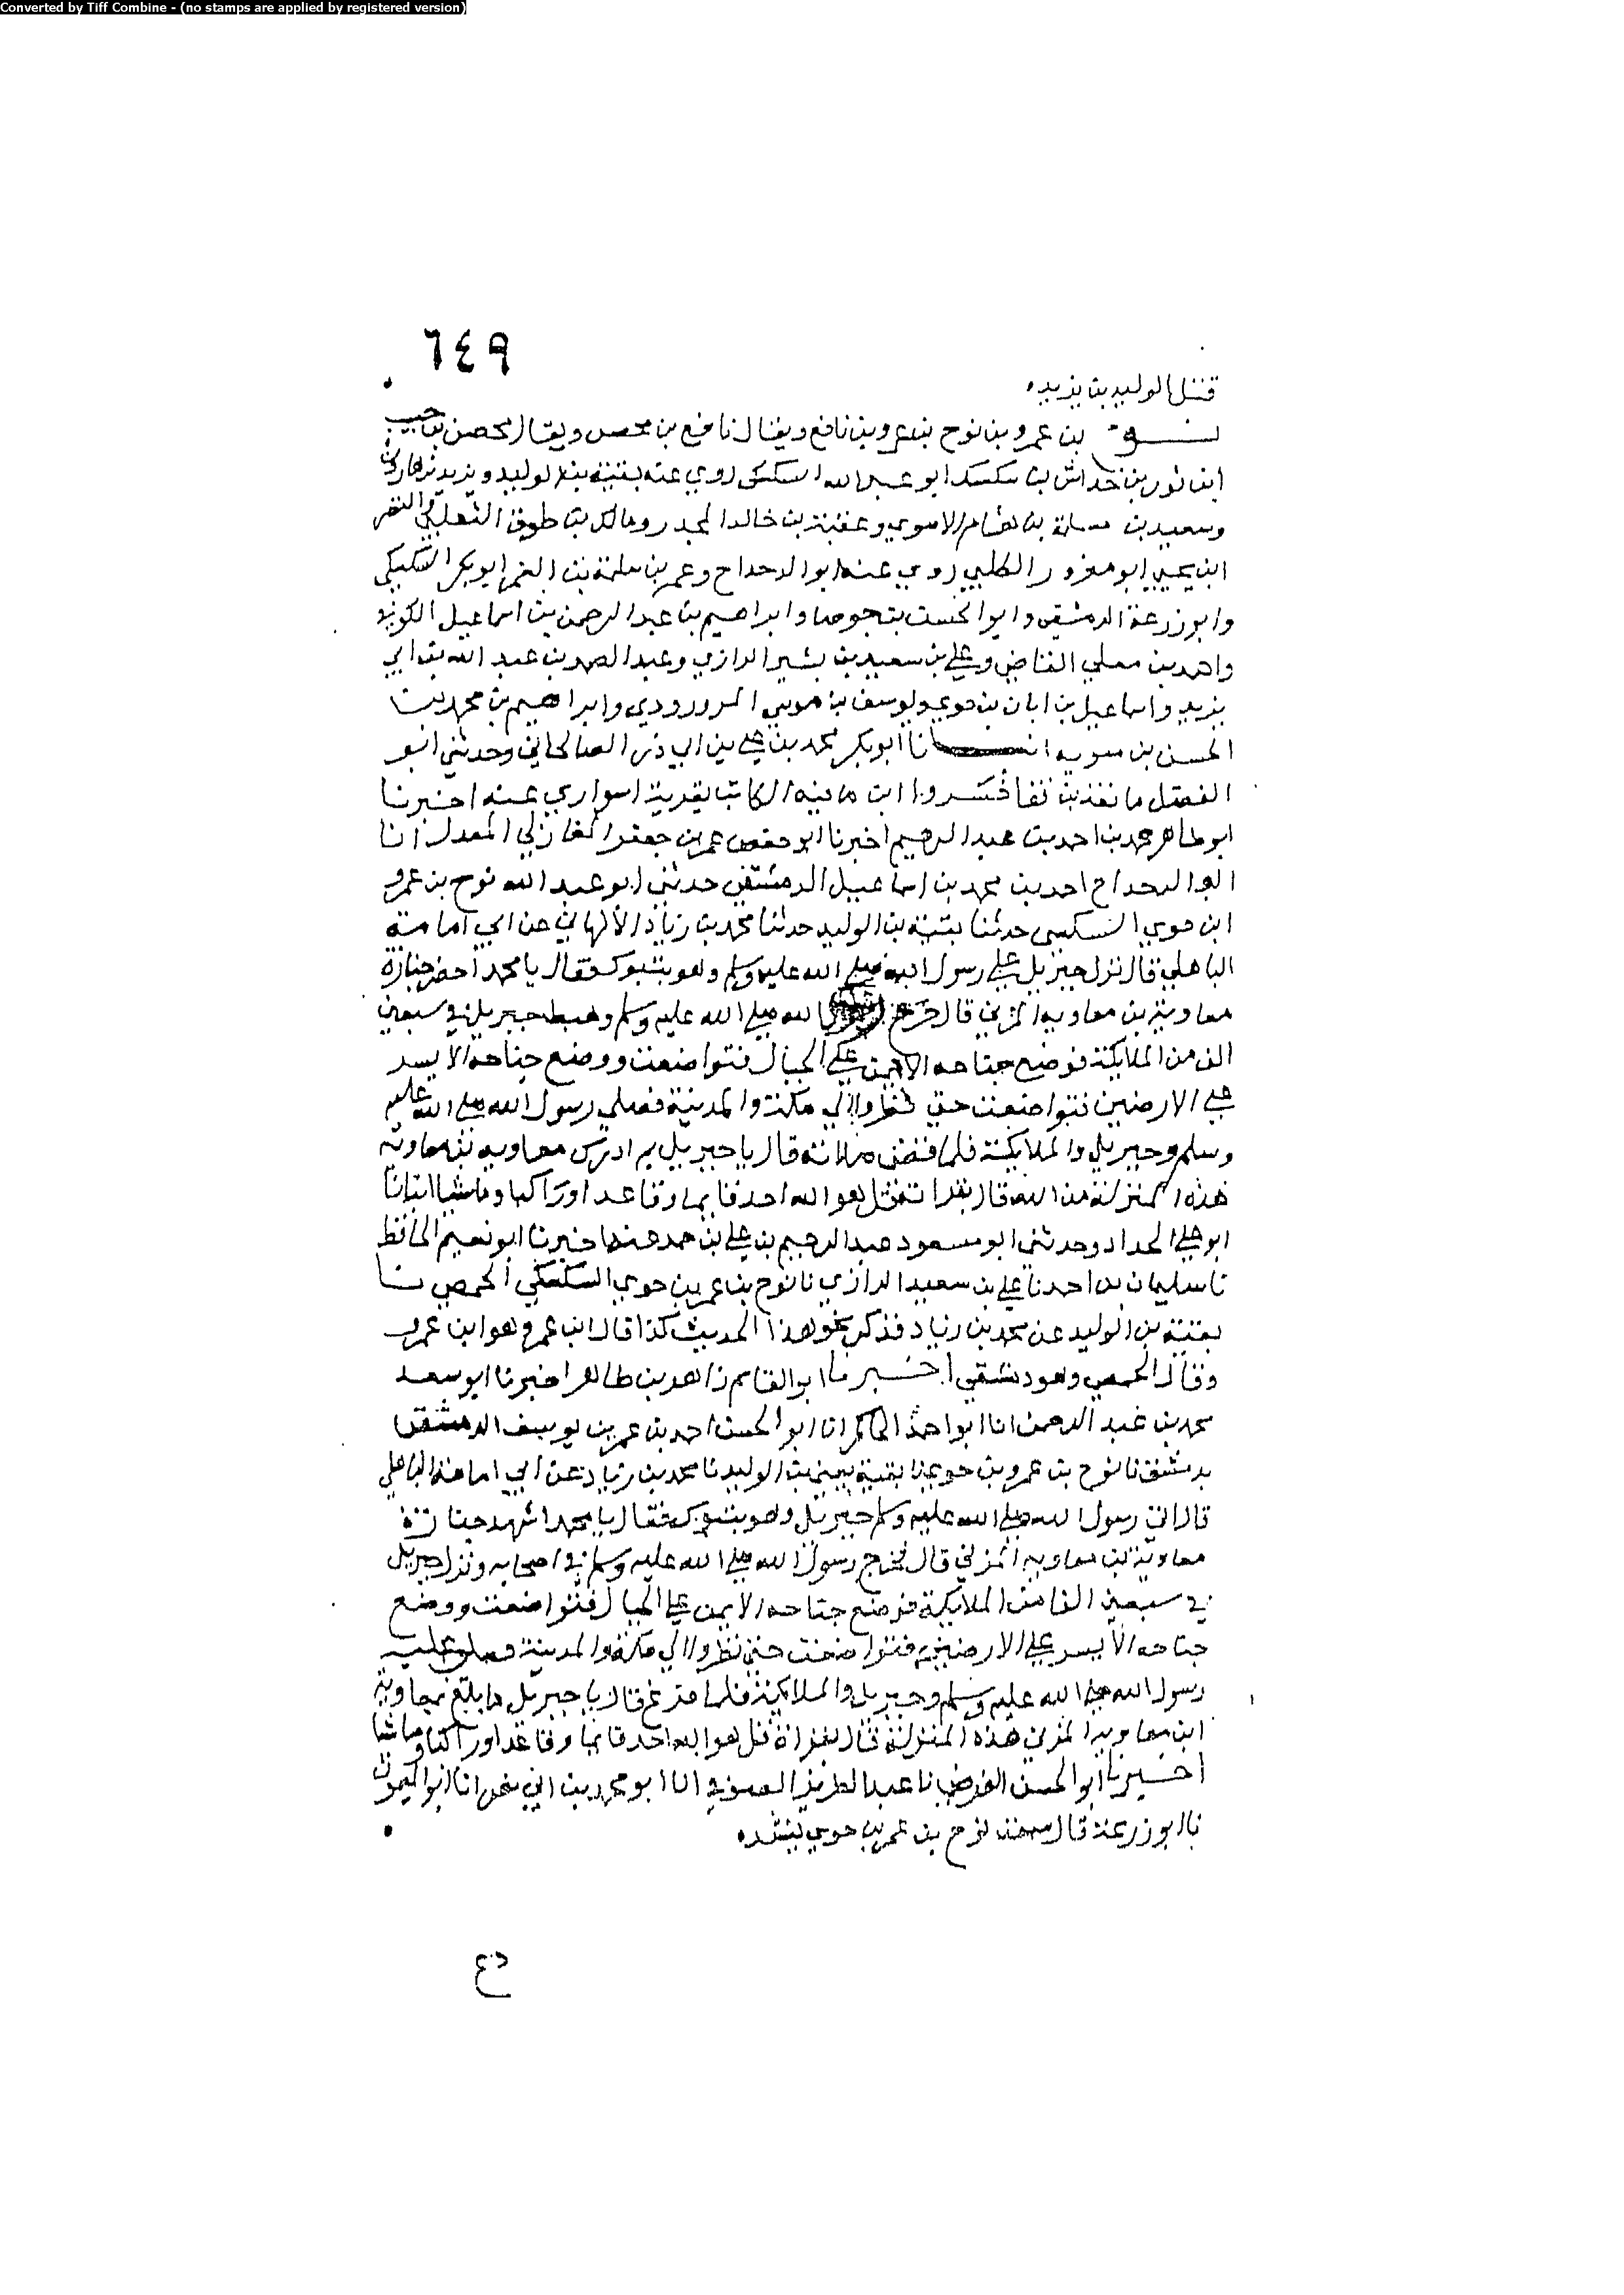 Converted by Tiff Combine - (no stamps are applied by registered version)
٦٤٩
قتل الوليد بن يزيد
نوح بن عمرو بن نوح بن عمرو بن نافع ويقال نافع بن محصن ويقال محصن بن حبيب
ابن ثور بن خداش بن سكسك ابو عبد الله السكسكي روي عنه بقية بن الوليد ويزيد بن هارون
وسعيد بن مسلمة بن هشام الاموي وعقبة بن خالد المجدر ومالك بن طوق الثعلبي والنضر
ابن يحيي ابو معزور الكلبي روي عنه ابو الدحداح وعمر بن سلمة بن الغمر ابو بكر السكسكي
وابو زرعة الدمشقي وابو الحسن بن جوصا وابراهيم بن عبد الرحمن بن اسماعيل الكوفي
واحمد بن معلي القاضي وعلي بن سعيد بن بشير الرازي وعبد الصمد بن عبد الله بن ابي
يزيد واسماعيل بن ابان بن حوي ويوسف بن موسي المرورودي وابراهيم بن محمد بن
الحسن بن متويه انبانا ابو بكر محمد بن علي بن ابي ذر الصالحاني وحدثني ابو
الفضل ابن الكاتب بقرية اسواري عنه اخبرنا
ابو طاهر محمد بن احمد بن عبد الرحيم اخبرنا ابو حفص عمر بن جعفر المغازلي المعدل انا
ابو الدحداح احمد بن محمد بن اسماعيل الدمشقي حدثني ابو عبد الله نوح بن عمرو
ابن حوي السكسكي حدثنا بقية بن الوليد حدثنا محمد بن زياد الالهاني عن ابي امامة
الباهلي قال نزل جبريل علي رسول الله صلي الله عليه وسلم وهو بتبوك فقال يا محمد احضر جنازة
معاوية بن معاويه المزني قال خرج رسول الله صلي الله عليه وسلم وهبط جبريل في سبعين
الف من الملايكة فوضع جناحه الايمن علي الجبال فتواضعت ووضع جناحه الايسر
علي الارضين فتواضعت حتي نظروا الي مكة والمدينة فصلي رسول الله صلي الله عليه
وسلم وجبريل والملايكة فلما قضي صلاته قال يا جبريل بم ادرك معاويه بن معاوية
هذه المنزلة من الله قال بقراة قل هو الله احد قايما وقاعدا وراكبا وماشيا انبانا
ابو علي الحداد وحدثني ابو مسعود عبد الرحيم بن علي بن حمد عنه اخبرنا ابو نعيم الحافظ
نا سليمان بن احمد نا علي بن سعيد الرازي نا نوح بن عمر بن حوي السكسكي الحمصي نا
بقية بن الوليد عن محمد بن زياد فذكر نحو هذا الحديث كذا قال ابن عمر وهو ابن عمرو
وقال الحمصي وهو دمشقي اخبرنا ابو القاسم زاهر بن طاهر اخبرنا ابو سعد
محمد بن عبد الرحمن انا ابو احمد الحاكم انا ابو الحسن احمد بن عمر بن يوسف الدمشقي
بدمشق نا نوح بن عمرو بن حوي نا بقية يعني بن الوليد نا محمد بن زياد عن ابي امامة الباهلي
قال اتي رسول الله صلي الله عليه وسلم جبريل وهو بتبوك فقال يا محمد اشهد جنازة
معاوية بن معاويه المزني قال فخرج رسول الله صلي الله عليه وسلم في اصحابه ونزل جبريل
في سبعين الفا من الملايكة فوضع جناحه الايمن علي الجبال فتواضعت ووضع
جناحه الايسر علي الارضين فتواضعت حتي نظروا الي مكة والمدينة فصلي عليه
رسول الله صلي الله عليه وسلم وجبريل والملايكة فلما فرغ قال يا جبريل ما بلغ بمعاوية
ابن معاويه المزني هذه المنزلة قال بقراة قل هو الله احد قايما وقاعدا وراكبا وماشيا
اخبرنا ابو الحسن الفرضي نا عبد العزيز الصوفي انا ابو محمد بن ابي نصر انا ابو الميمون
نا ابو زرعة قال سمعت نوح بن عمر بن حوي ينشد